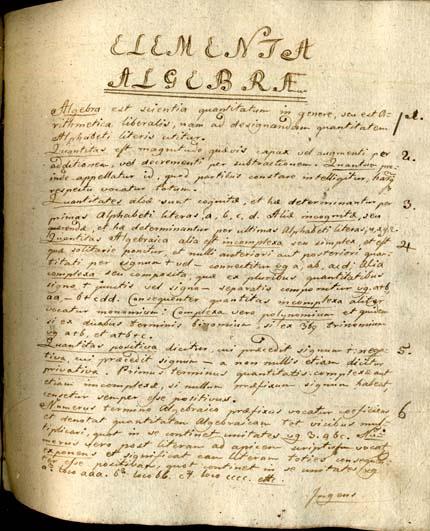 ELEMENTA
ALGEBRÆ
Algebra est scientia quantitatum in genere, seu est A-
rithmetica liberalis, nam ad designandam quantitatem
Alphabeti literis utitur.
Quantitas est magnitudo quævis capax vel augmenti per 2.
additionem, vel decrementi per subtractionem. Quantum pro
inde appellatur id, quod partibus constare intelligitur,
respectu vocatur totum.
Quantitates aliæ sunt cognitæ, et hæ determinantur per 3.
primas alphabeti literas, a, b, c, d. Aliæ incognitæ, seu
quærendæ, et hæ determinantur per ultimas Alphabeti literas,
Quantitas Algebraica alia est incomplexa seu simplex, et est 4
quæ solitarie ponitur, et nulli anteriori aut posteriori quan-
titati per signum + vel - connectitur vg a, ab, acd. Alia
complexa seu composita, quæ ex duabus quantitatibus
signo + junctis vel signo - separatis componitur vg. a+b
aa - b+cdd. Consequenter quantitas incomplexa aliter
vocatur monomium: Complexa vero polynomium et quidem
si ex duabus terminis binomium, si ex 3bg trinomium
vg a+b, et a+b+c.
Quantitas positiva dicitur, cui præcedit signum +: nega- 5.
tiva, cui præcedit signum -, a non nullis etiam dicitur
privativa. Primus terminus quantitatis complexæ aut
etiam incomplexæ, si nullum præfixum signum habeat
censetur semper esse positivus.
Numerus termino Algebraico præfixus vocatur coeficiens 6
et denotat quantitatem Algebraicam tot vicibus mul-
tiplicari, quot in se continet unitates vg. 3. a, 9bc. Nu-
merus vero post literam ad apicem scriptus vocatur
exponens et significat eam literam toties
esse positivam, quot continet in se unitates vg
a³ loco aaa. b² loco bb. c⁴. loco cccc. etc.